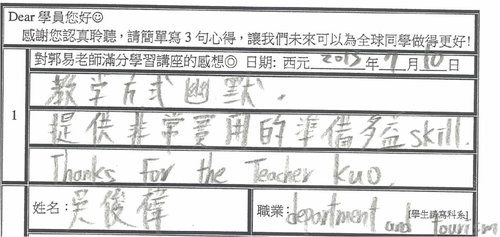 Dear 學員您好☺
感謝您認真聆聽，請簡單寫 3 句心得，讓我們未來可以為全球同學做得更好!
對郭易老師滿分學習講座的感想◎ 日期: 西元 2013 年 9 月 10 日
1
教学方式幽默.
提供非常實用的準備多益skill.
Thanks For the Teacher kuo.
姓名: 吳俊樟
職業: department and tourism
[學生請寫科系]